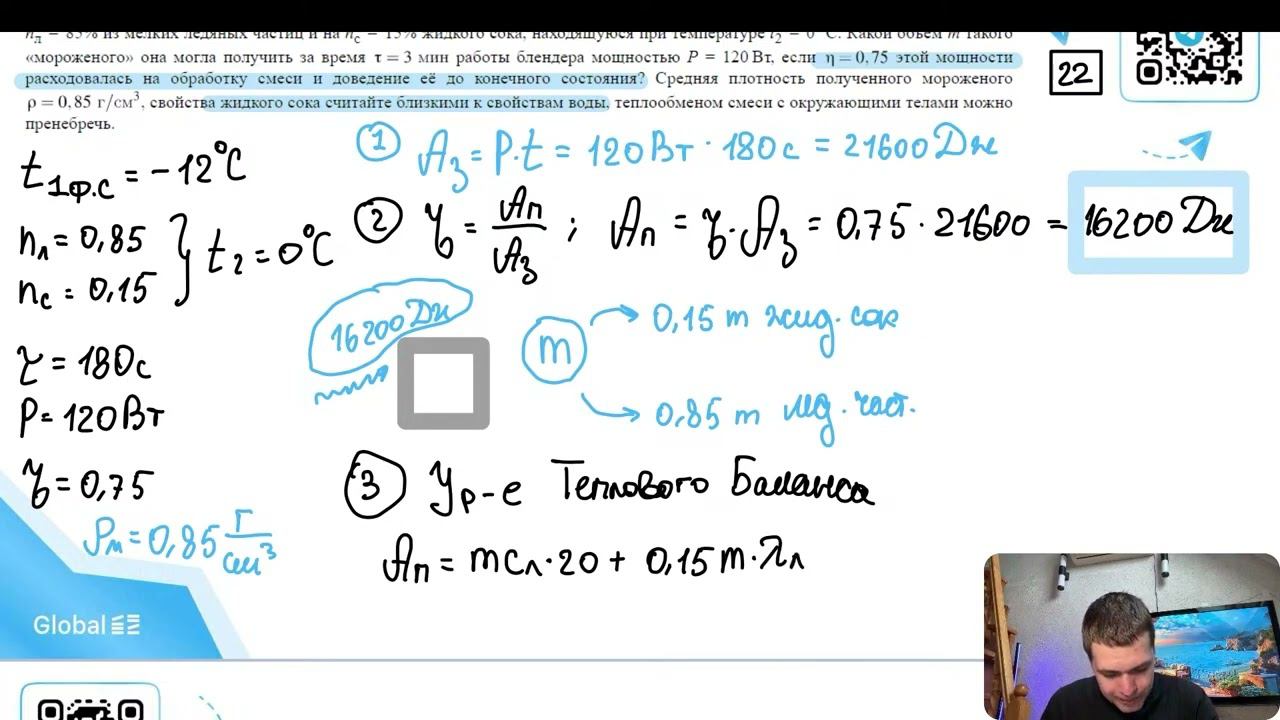 n_л = 85% из мелких ледяных частиц и на n_с = 15% жидкого сока, находящуюся при температуре t₂ = 0 °С. Какой объём m такого
«мороженого» она могла получить за время τ = 3 мин работы блендера мощностью P = 120 Вт, если η = 0,75 этой мощности
расходовалась на обработку смеси и доведение её до конечного состояния? Средняя плотность полученного мороженого
ρ = 0,85 г/см³, свойства жидкого сока считайте близкими к свойствам воды, теплообменом смеси с окружающими телами можно
пренебречь.
22
t₁ф.с = −12°С
n_л = 0,85
n_с = 0,15
} t₂ = 0°С
τ = 180с
P = 120Вт
η = 0,75
ρ_м = 0,85 г/см³
① A_з = P·t = 120Вт · 180с = 21600Дж
② η = A_п/A_з ; A_п = η·A_з = 0,75 · 21600 = 16200 Дж
16200 Дж
m
0,15 m жид. сок
0,85 m лед. част.
③ Ур-е Теплового Баланса
A_п = m c_л · 20 + 0,15 m · λ_л
Global EE